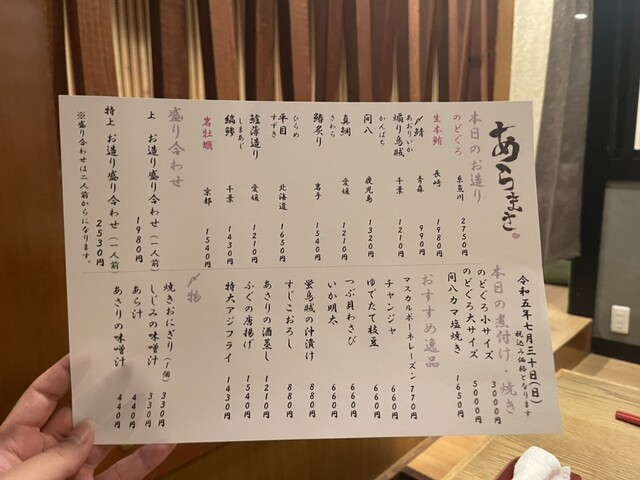 あらまさ
令和五年七月三十日(日)
税込み価格となります
本日のお造り
のどぐろ 糸魚川 2750円
生本鮪 長崎 1980円
〆鯖 青森 990円
あおりいか
煽り烏賊 千葉 1210円
かんぱち
間八 鹿児島 1320円
真鯛 愛媛 1210円
さわら
鰆炙り 岩手 1540円
ひらめ
平目 北海道 1650円
すずき
鱸薄造り 愛媛 1210円
しまあじ
縞鯵 千葉 1430円
岩牡蠣 京都 1540円
盛り合わせ
上 お造り盛り合わせ(一人前) 1980円
特上 お造り盛り合わせ(一人前) 2530円
※盛り合わせは二人前からになります。
本日の煮付け・焼き
のどぐろ小サイズ 3000円
のどぐろ大サイズ 5000円
間八カマ塩焼き 1650円
おすすめ逸品
マスカルポーネレーズン 770円
チャンジャ 660円
ゆでたて枝豆 660円
つぶ貝わさび 660円
いか明太 660円
蛍烏賊の沖漬け 880円
すじこおろし 880円
あさりの酒蒸し 1210円
ふぐの唐揚げ 1540円
特大アジフライ 1430円
〆物
焼きおにぎり(1個) 330円
しじみの味噌汁 330円
あら汁 440円
あさりの味噌汁 440円